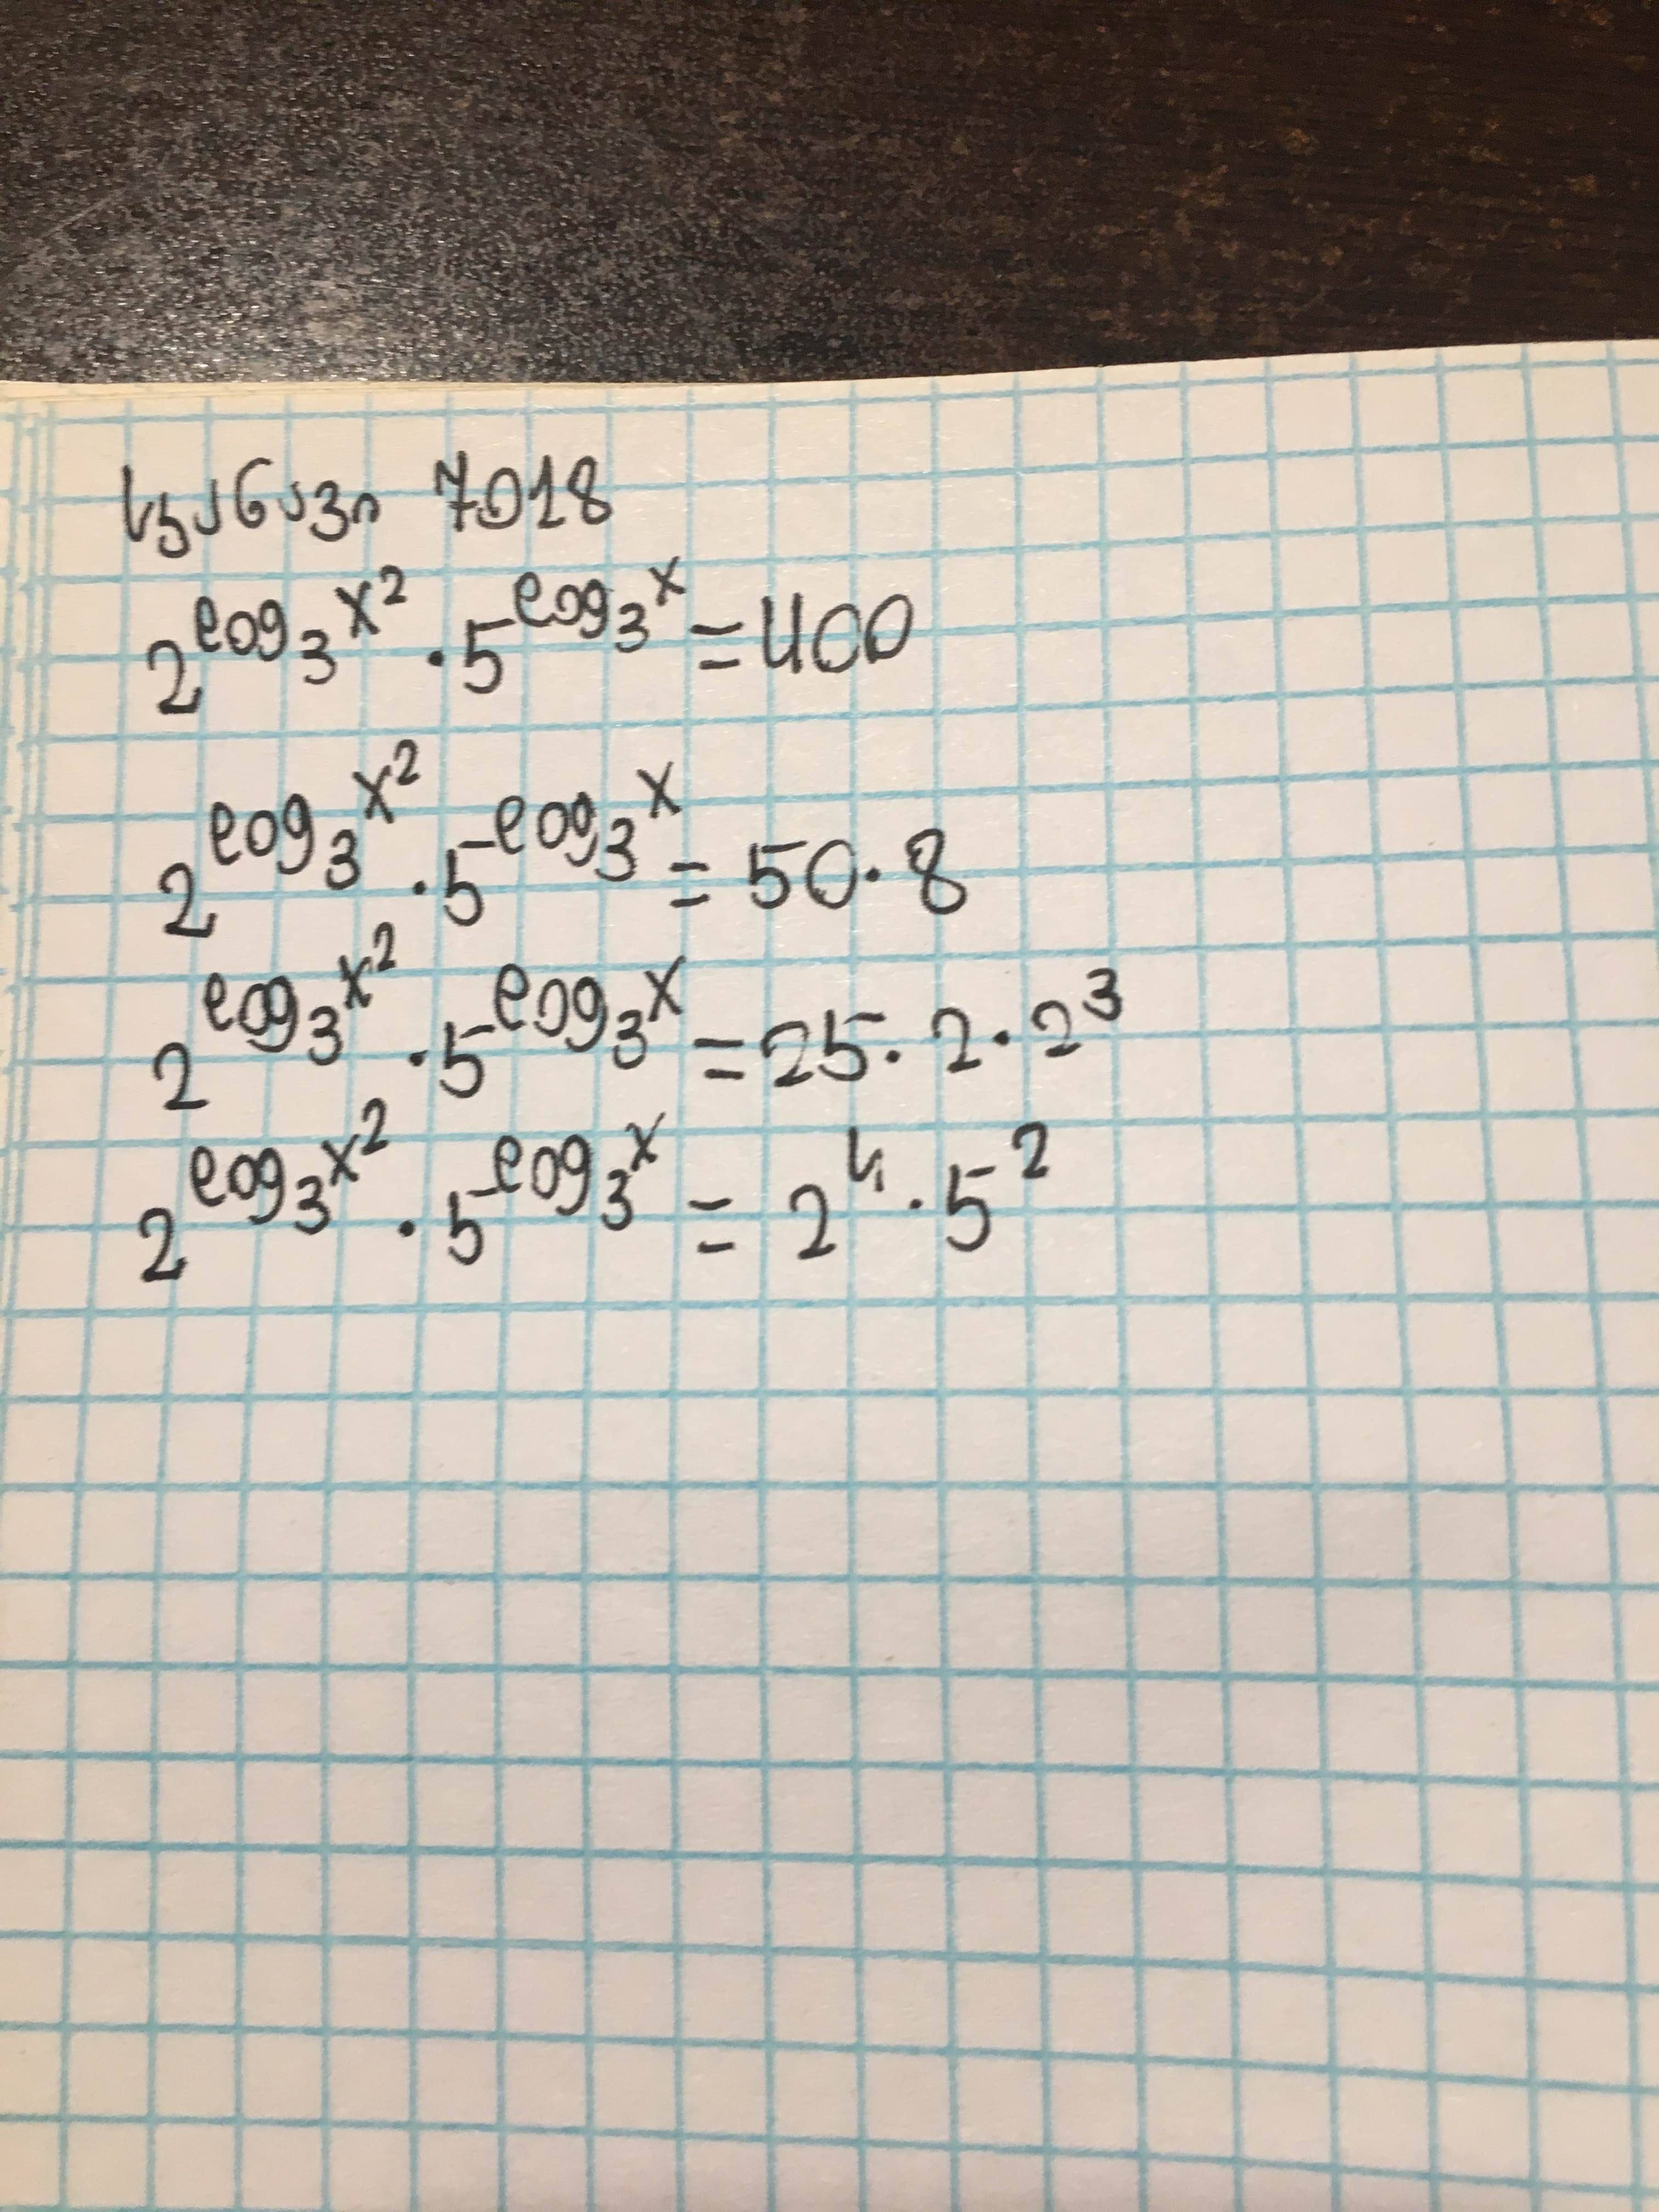 2^{log_3 x^2} · 5^{log_3 x} = 400
2^{log_3 x^2} · 5^{log_3 x} = 50 · 8
2^{log_3 x^2} · 5^{log_3 x} = 25 · 2 · 2^3
2^{log_3 x^2} · 5^{log_3 x} = 2^4 · 5^2